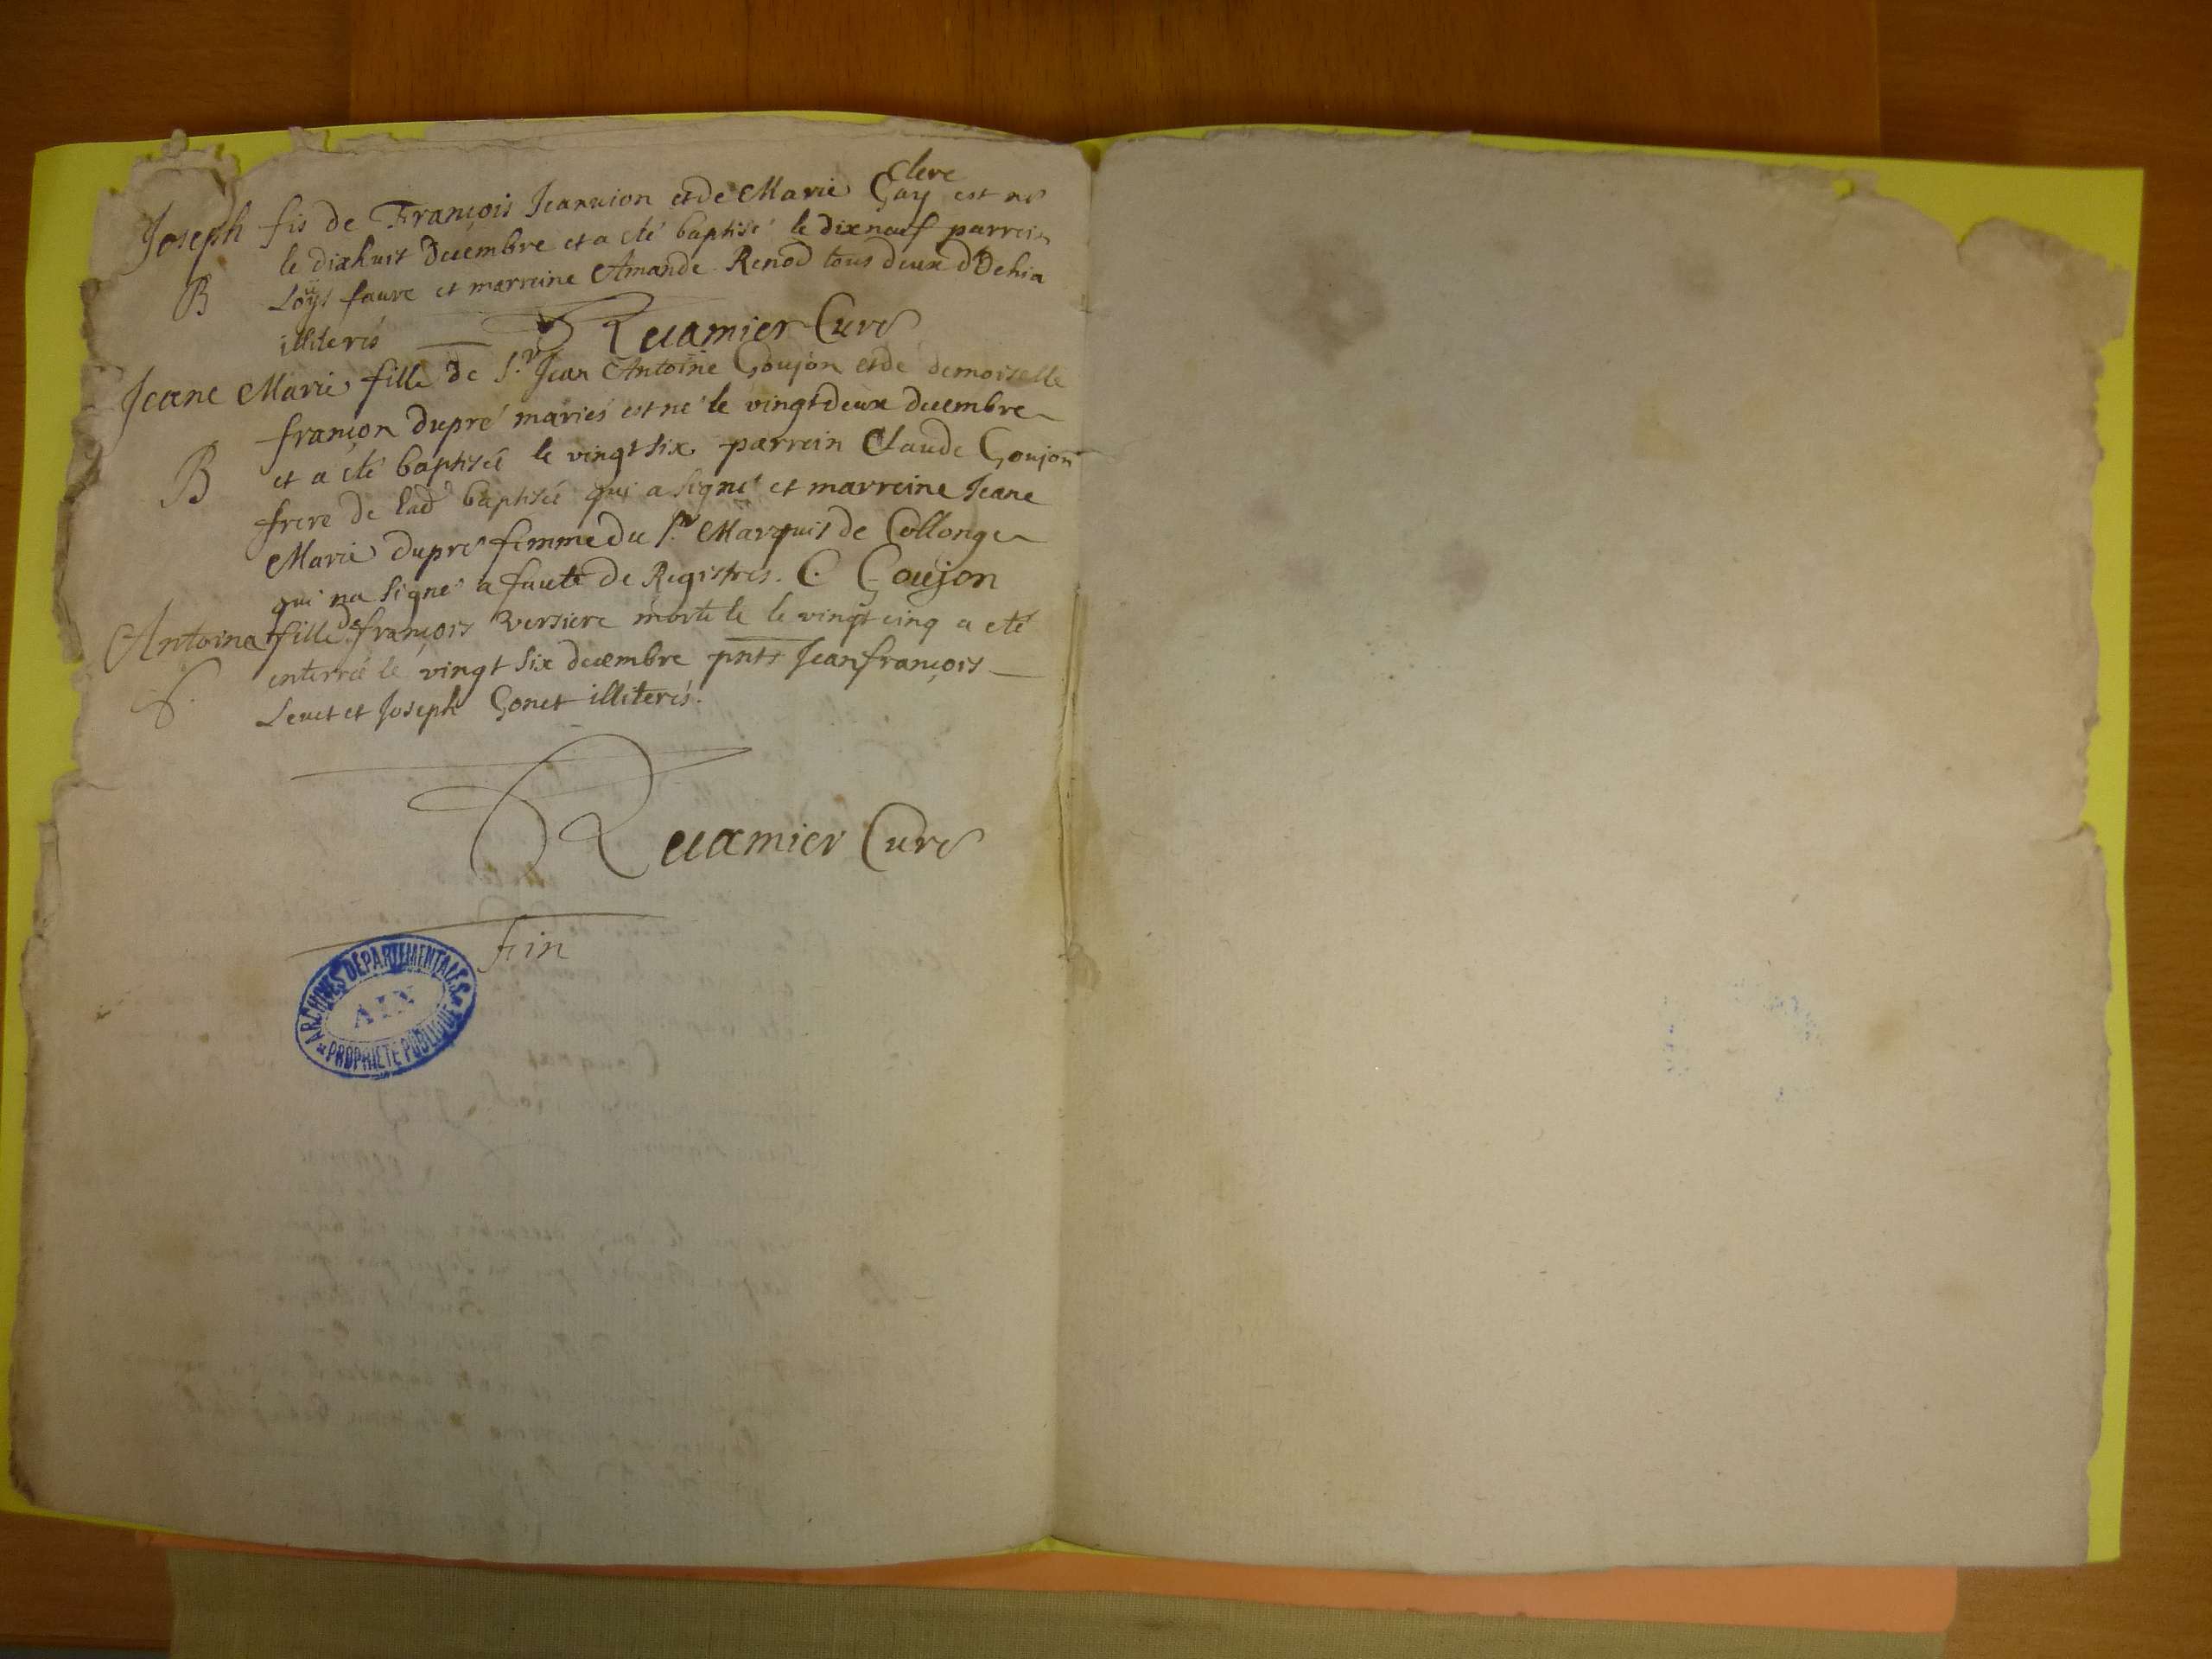 clere
Joseph fis de François Jeannion et de Marie Gay est né
le dixhuit Decembre et a eté baptisé le dixneuf parrein
B Loÿs fauvre et marreine Amande Renod tous deux d'Dehia
illiterés Recamier Curé
Jeane Marie fille de S.r Jean Antoine Goujon et de demoiselle
françon dupré mariés est né le vingtdeux decembre
B et a eté baptisée le vingt six parrein Claude Goujon
frere de lad.e baptisée qui a signé et marreine Jeane
Marie dupré femme du S.r Marquis de Collonge
qui na signé a faute de Registres. C. Goujon
Antoina fille de françois Versiere morte le le vingt cinq a eté
enterrée le vingt six decembre pnts Jean françois
S. Levet et Joseph Gonet illiterés.
Recamier Curé
fin
ARCHIVES DEPARTEMENTALES
AIN
PROPRIETE PUBLIQUE